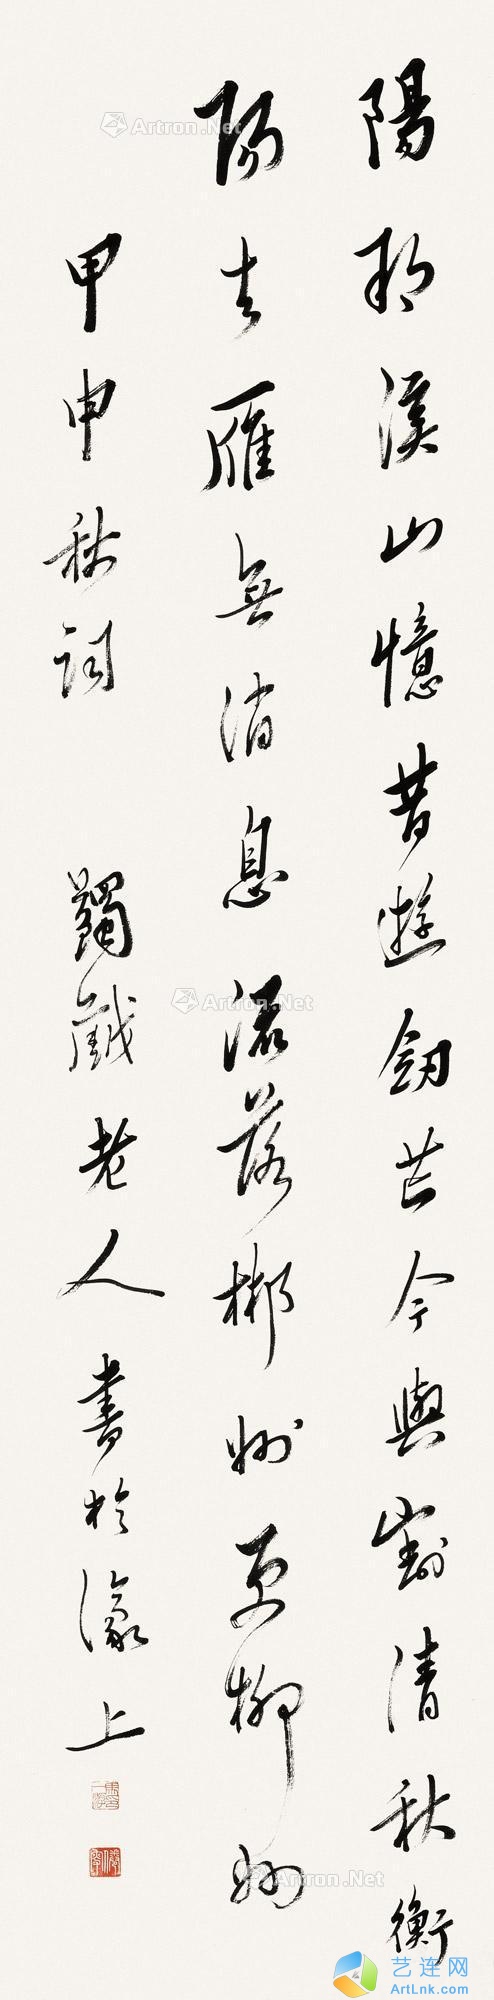 陽朔溪山憶昔遊劒芒今與割清秋衡
陽去雁無消息流落郴州更柳州
甲申秋詞 蠲戲老人書於濠上
Artron.Net
Artron.Net
Artron.Net
艺连网
ArtLnk.com